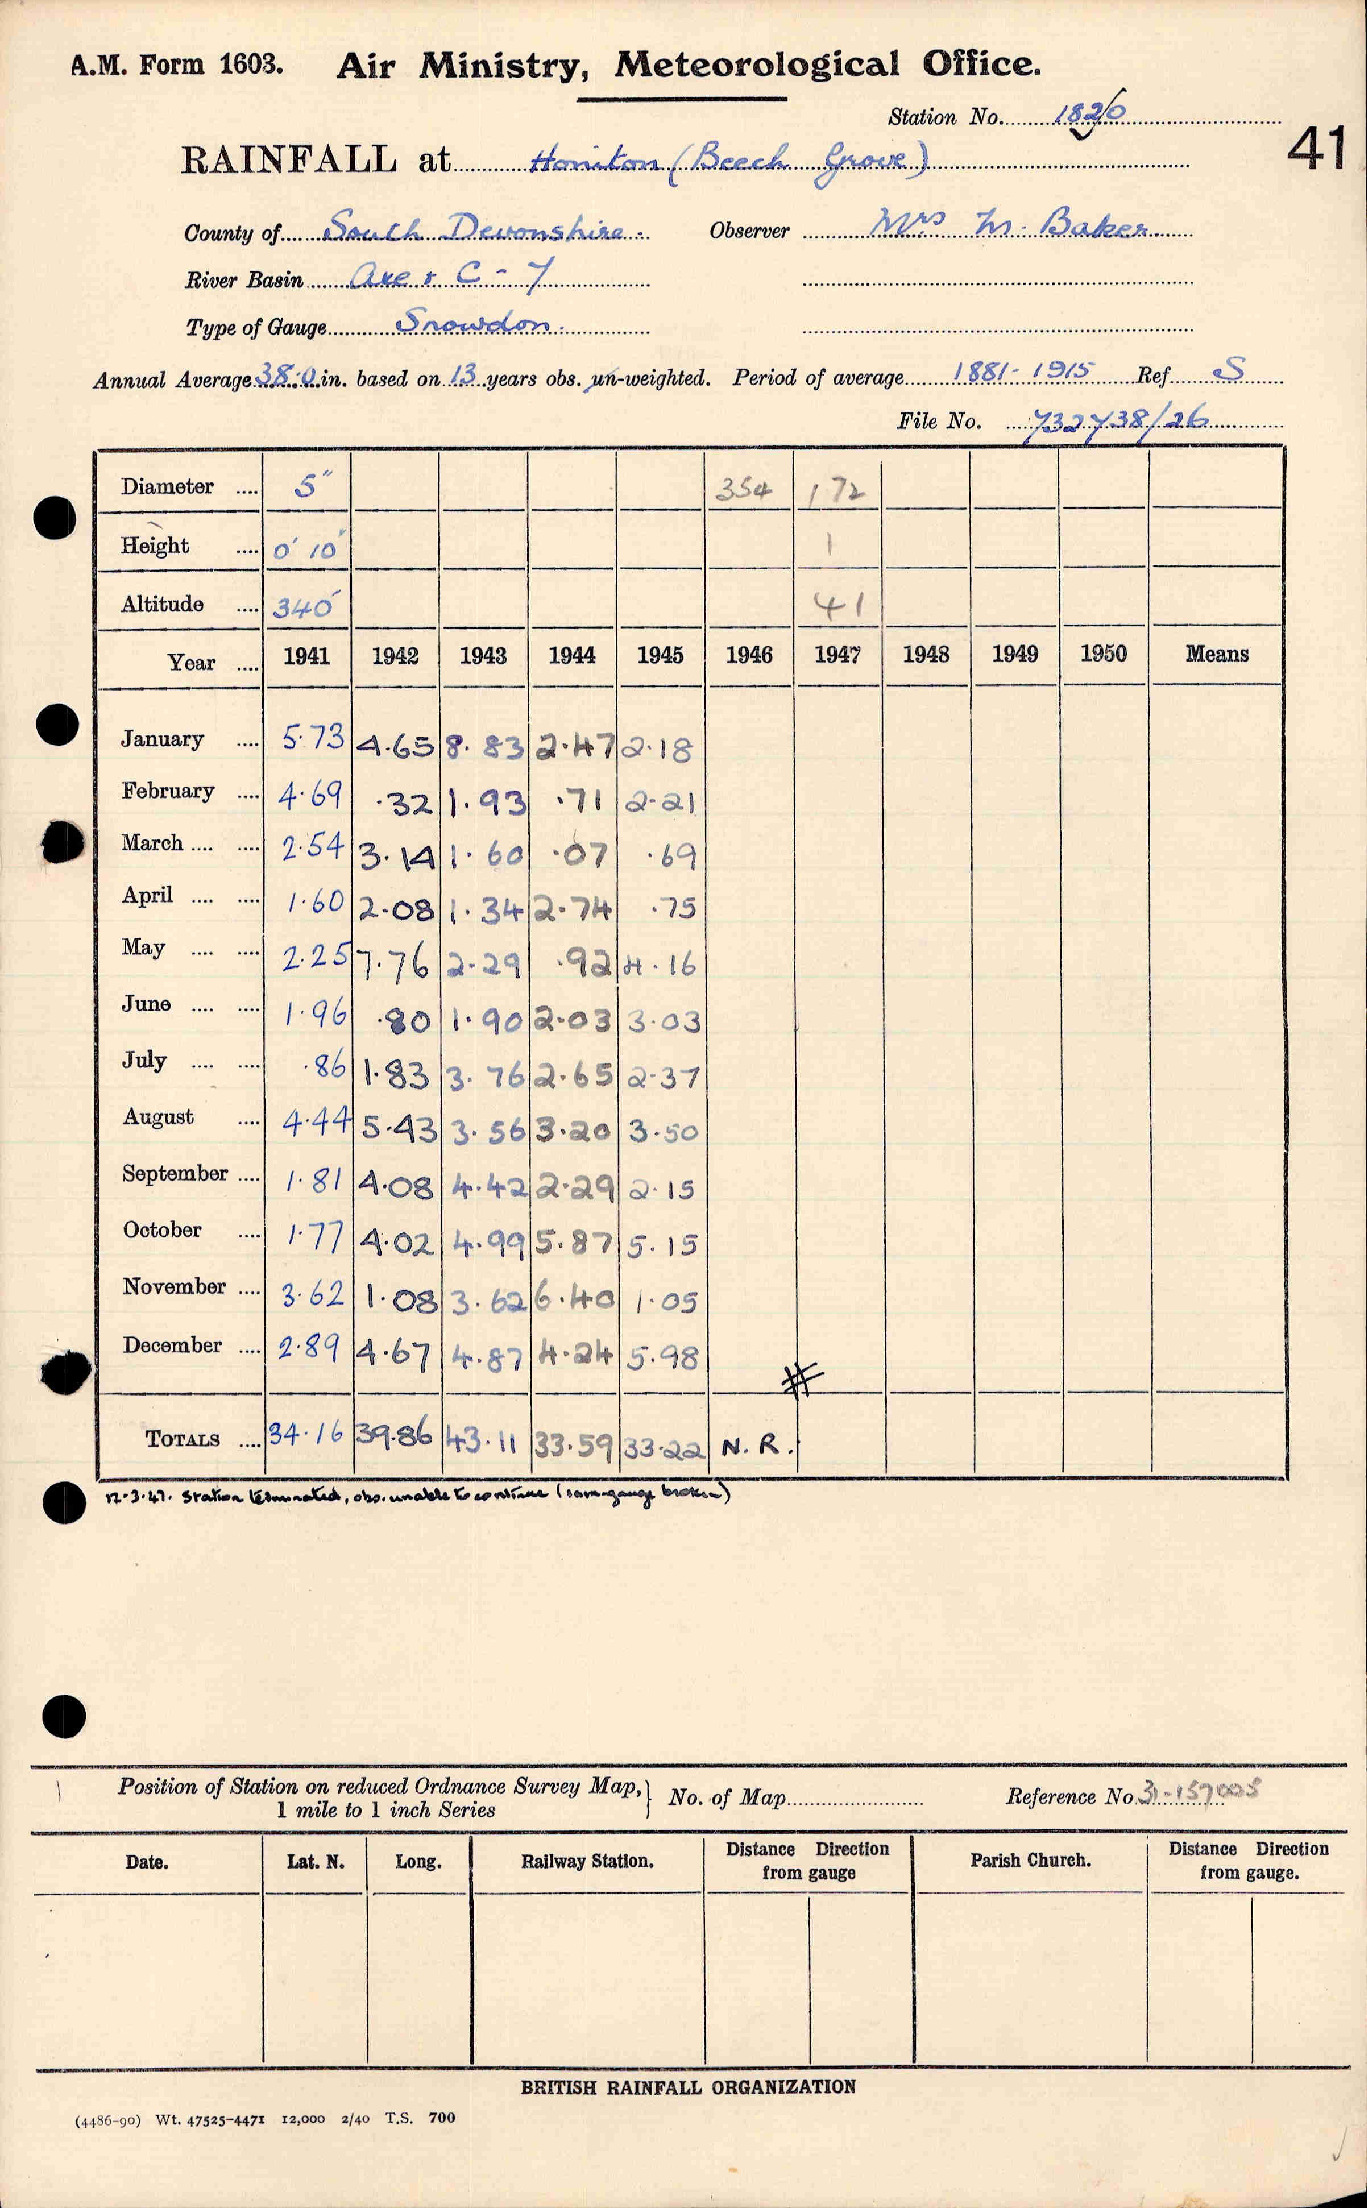 A.M. Form 1603. Air Ministry, Meteorological Office.
Station No. 182/0
41
RAINFALL at Honiton (Beech Grove)
County of South Devonshire. Observer Mrs M. Baker
River Basin Axe & C - 7
Type of Gauge Snowdon.
Annual Average 38.0 in. based on 13 years obs. un-weighted. Period of average 1881-1915 Ref S
File No. 732738/26
Diameter .... 5" 354 172
Height .... 0' 10" 1
Altitude .... 340' 41
Year .... 1941 1942 1943 1944 1945 1946 1947 1948 1949 1950 Means
January .... 5.73 4.65 8.83 2.47 2.18
February .... 4.69 .32 1.93 .71 2.21
March .... .... 2.54 3.14 1.60 .07 .69
April .... .... 1.60 2.08 1.34 2.74 .75
May .... .... 2.25 7.76 2.29 .92 4.16
June .... .... 1.96 .80 1.90 2.03 3.03
July .... .... .86 1.83 3.76 2.65 2.37
August .... 4.44 5.43 3.56 3.20 3.50
September .... 1.81 4.08 4.42 2.29 2.15
October .... 1.77 4.02 4.99 5.87 5.15
November .... 3.62 1.08 3.62 6.40 1.05
December .... 2.89 4.67 4.87 4.24 5.98
#
TOTALS .... 34.16 39.86 43.11 33.59 33.22 N.R.
12.3.47. Station terminated, obs. unable to continue (rain-gauge broken)
Position of Station on reduced Ordnance Survey Map, 1 mile to 1 inch Series } No. of Map Reference No. 31-157005
Date. Lat. N. Long. Railway Station. Distance Direction from gauge Parish Church. Distance Direction from gauge.
BRITISH RAINFALL ORGANIZATION
(4486-90) Wt. 47525-4471 12,000 2/40 T.S. 700